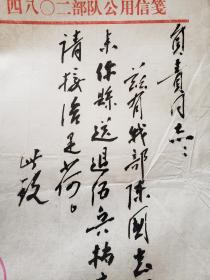 四八〇二部队公用信笺
负责同志：
兹有我部陈国
去你县送退伍兵档
请接洽是何。
此致